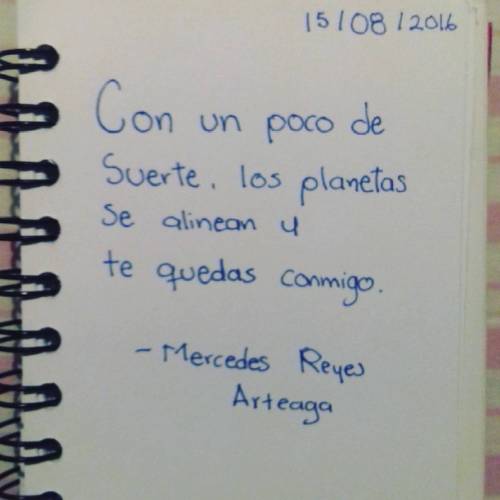 15/08/2016
Con un poco de
Suerte, los planetas
se alinean y
te quedas conmigo.
- Mercedes Reyes
Arteaga